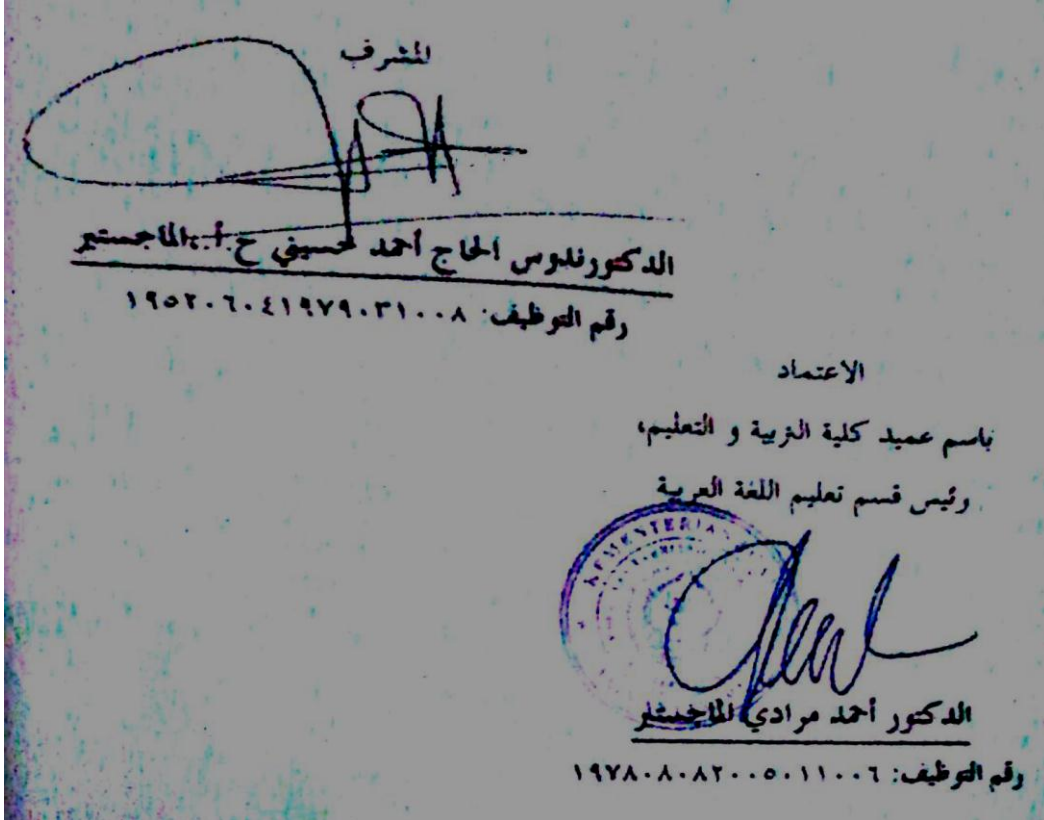 المشرف
الدكتورندوس الحاج أحمد حسيني ح.أ.،الماجستير
رقم التوظيف: ١٩٥٢٠٦٠٤١٩٧٩٠٣١٠٠٨
الاعتماد
باسم عميد كلية التربية و التعليم،
رئيس قسم تعليم اللغة العربية
KEMENTERIA
الدكتور أحمد مرادي الماجستير
رقم التوظيف: ١٩٧٨٠٨٠٨٢٠٠٥٠١١٠٠٦